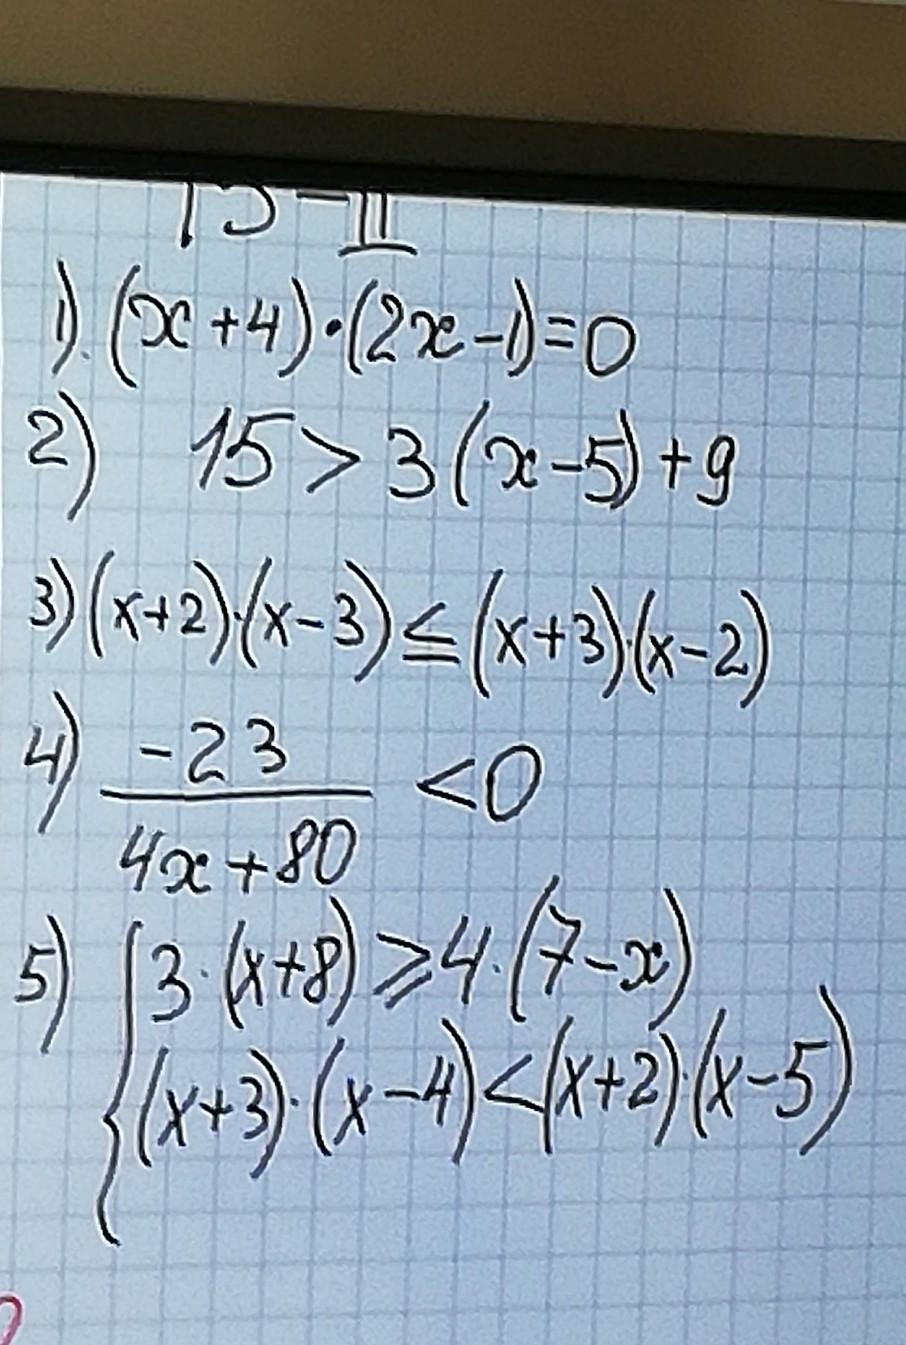 1). (x+4)·(2x-1)=0
2) 15 > 3(x-5)+9
3) (x+2)·(x-3) ≤ (x+3)·(x-2)
4) -23 / 4x+80 < 0
5) { 3·(x+8) ≥ 4·(7-x)
(x+3)·(x-4) < (x+2)·(x-5)